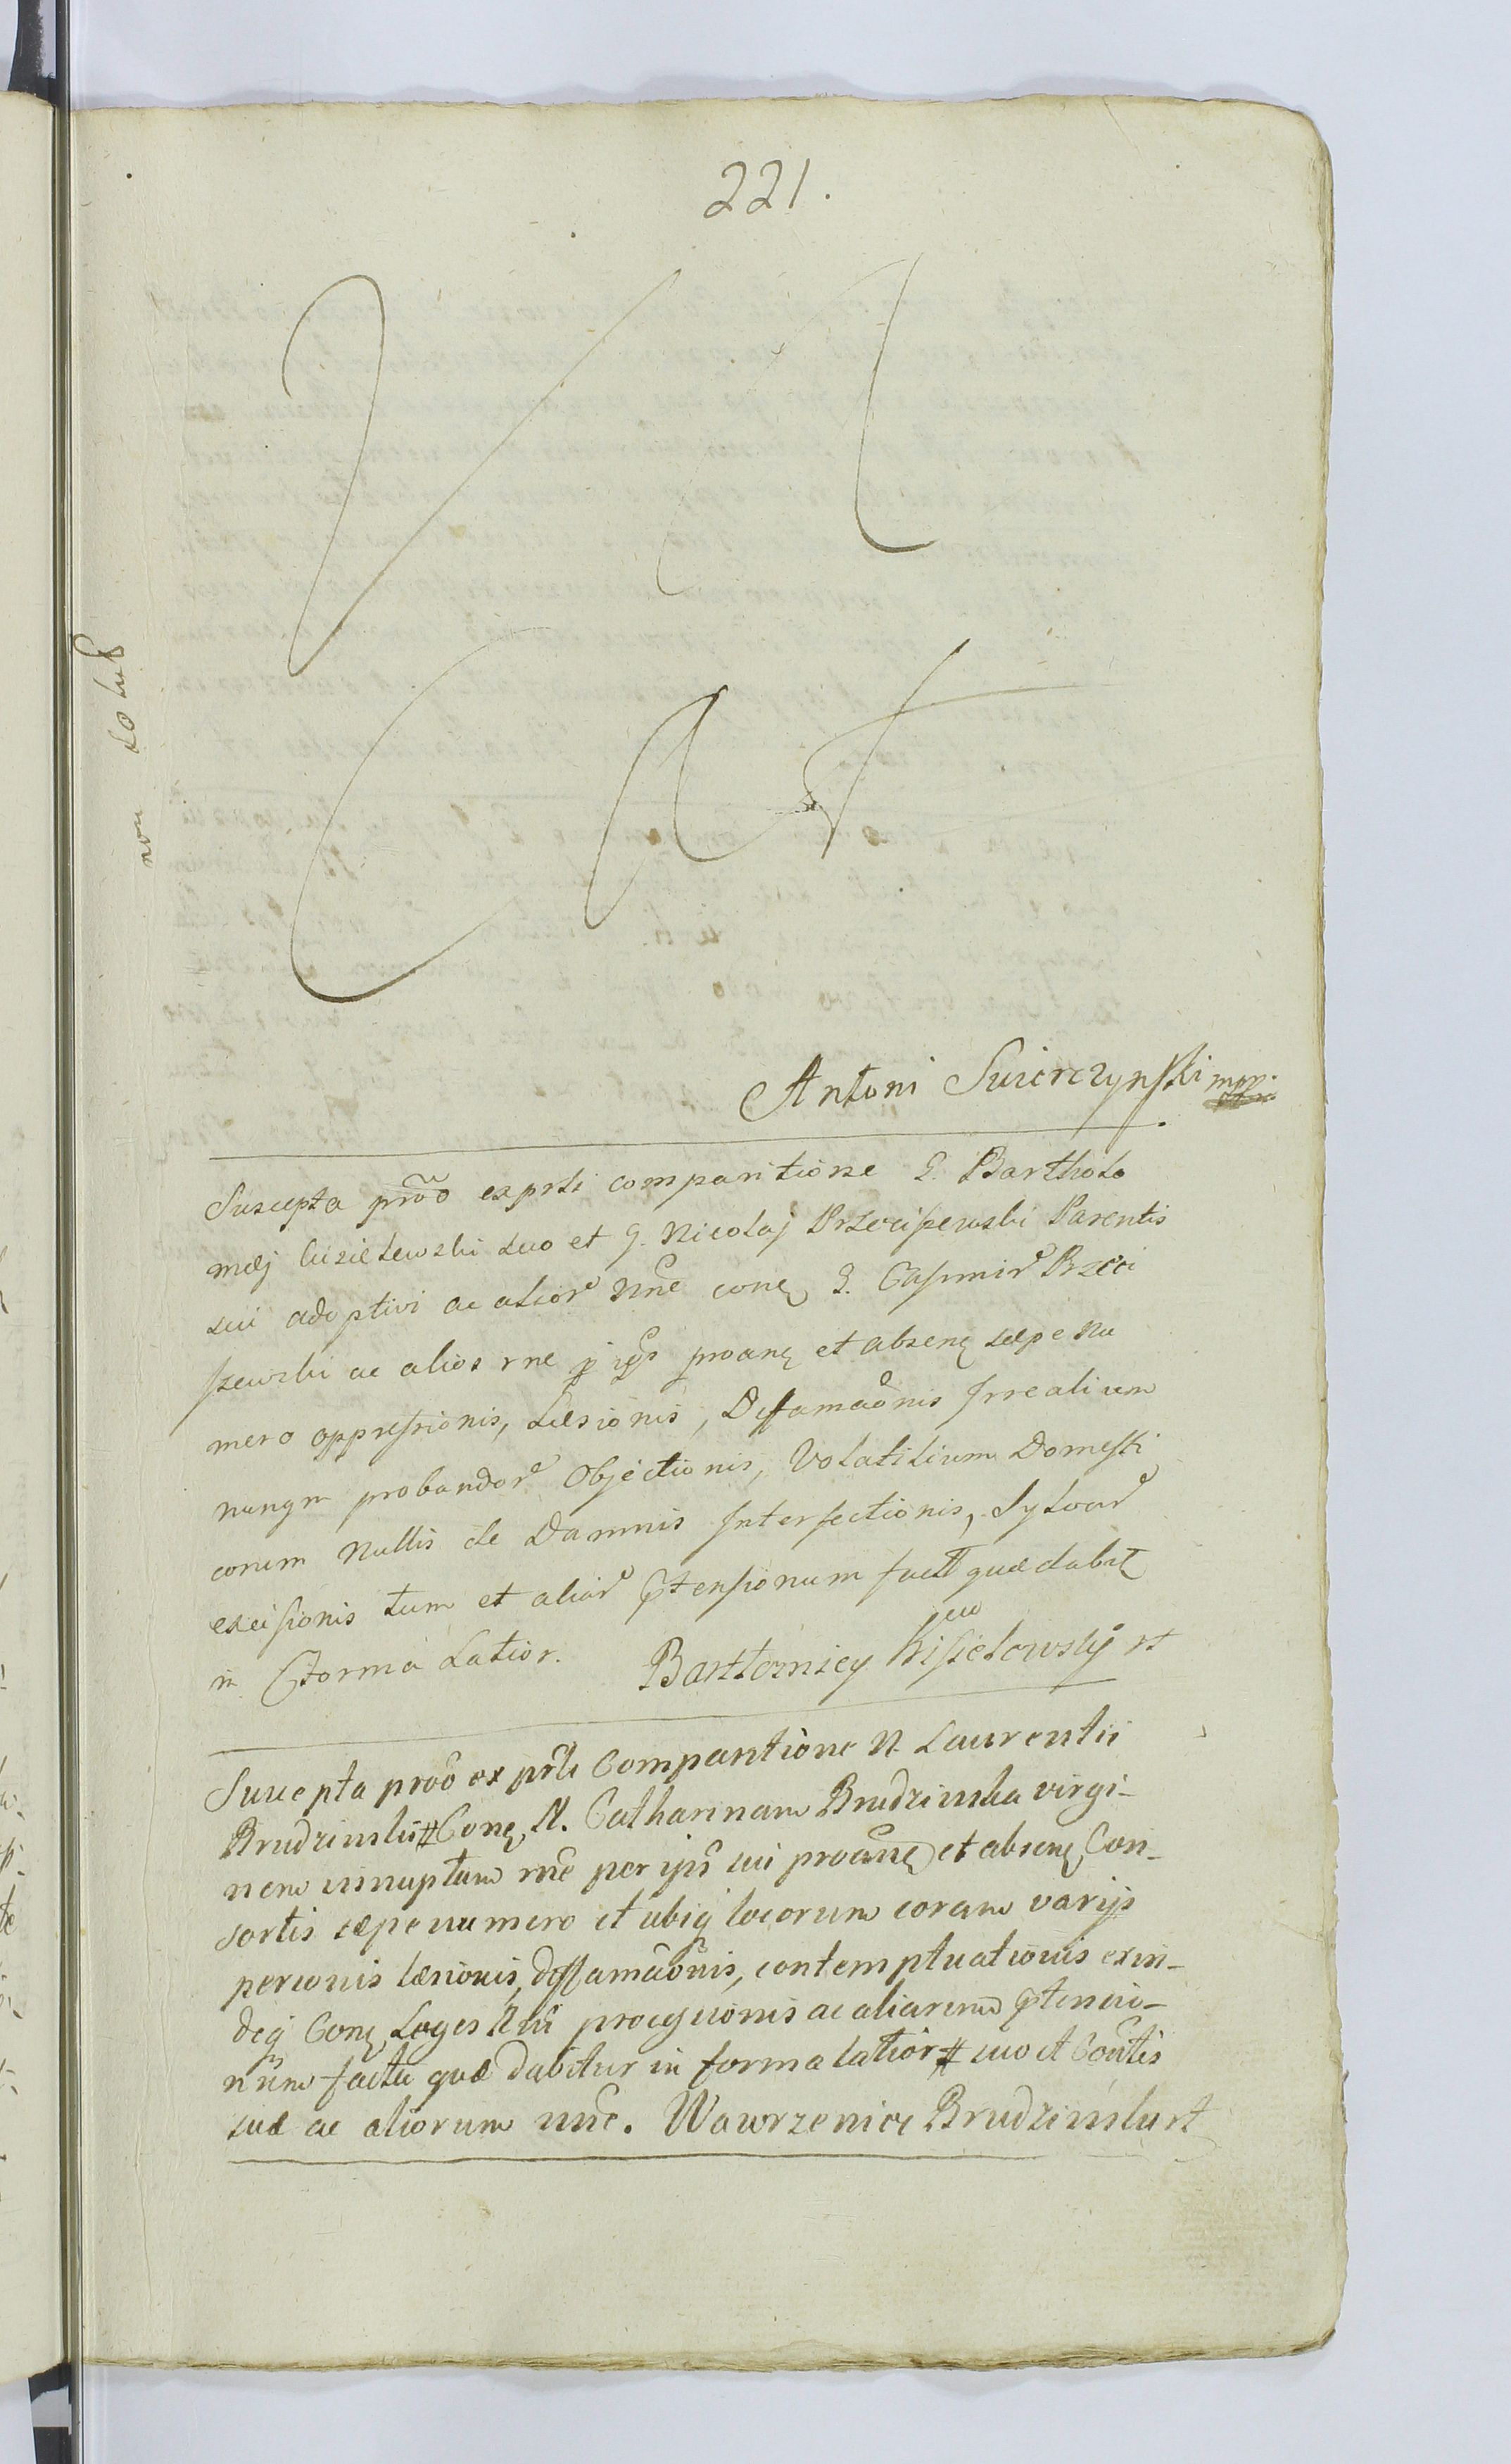 221.
Vacat
non solut
Antoni Swierczynski mpp.
Suscepta prõõ ex prti comparitione G. Bartholo
mæj Cisielewski suo et G. Nicolaj Przeciszewski Parentis
sui adoptivi ac alior nñe conq G. Casimir Przeci
szewski ac alios rne p ips proanq et absenq sæpe nu
mero oppressionis, Læsionis, Diffamaõnis Irrealium
nunqm probandor Objectionis, Volatilium Domesti
corum Nullis de Damnis Interfectionis, Sylvar
excisionis tum et aliar ptensionum fact quæ dabit
in Forma Latior. Bartłomiey Kisielowsky rt
Suscepta prõõ ex prti Comparitione N. Laurentii
Brudzinski # Conq N. Catharinam Brudzinska virgi-
nem innuptam rñe per ips sui proanq et absenq Con-
sortis sæpe numero et ubiq locorum coram varijs
personis læsionis, diffamaõnis, contemptuationis exin-
deq Conq Leges
ac aliarum ptensio-
num facta quæ dabitur in forma latior # suo et Contis
suæ ac aliorum nñe. Wawrzeniec Brudzinski rt